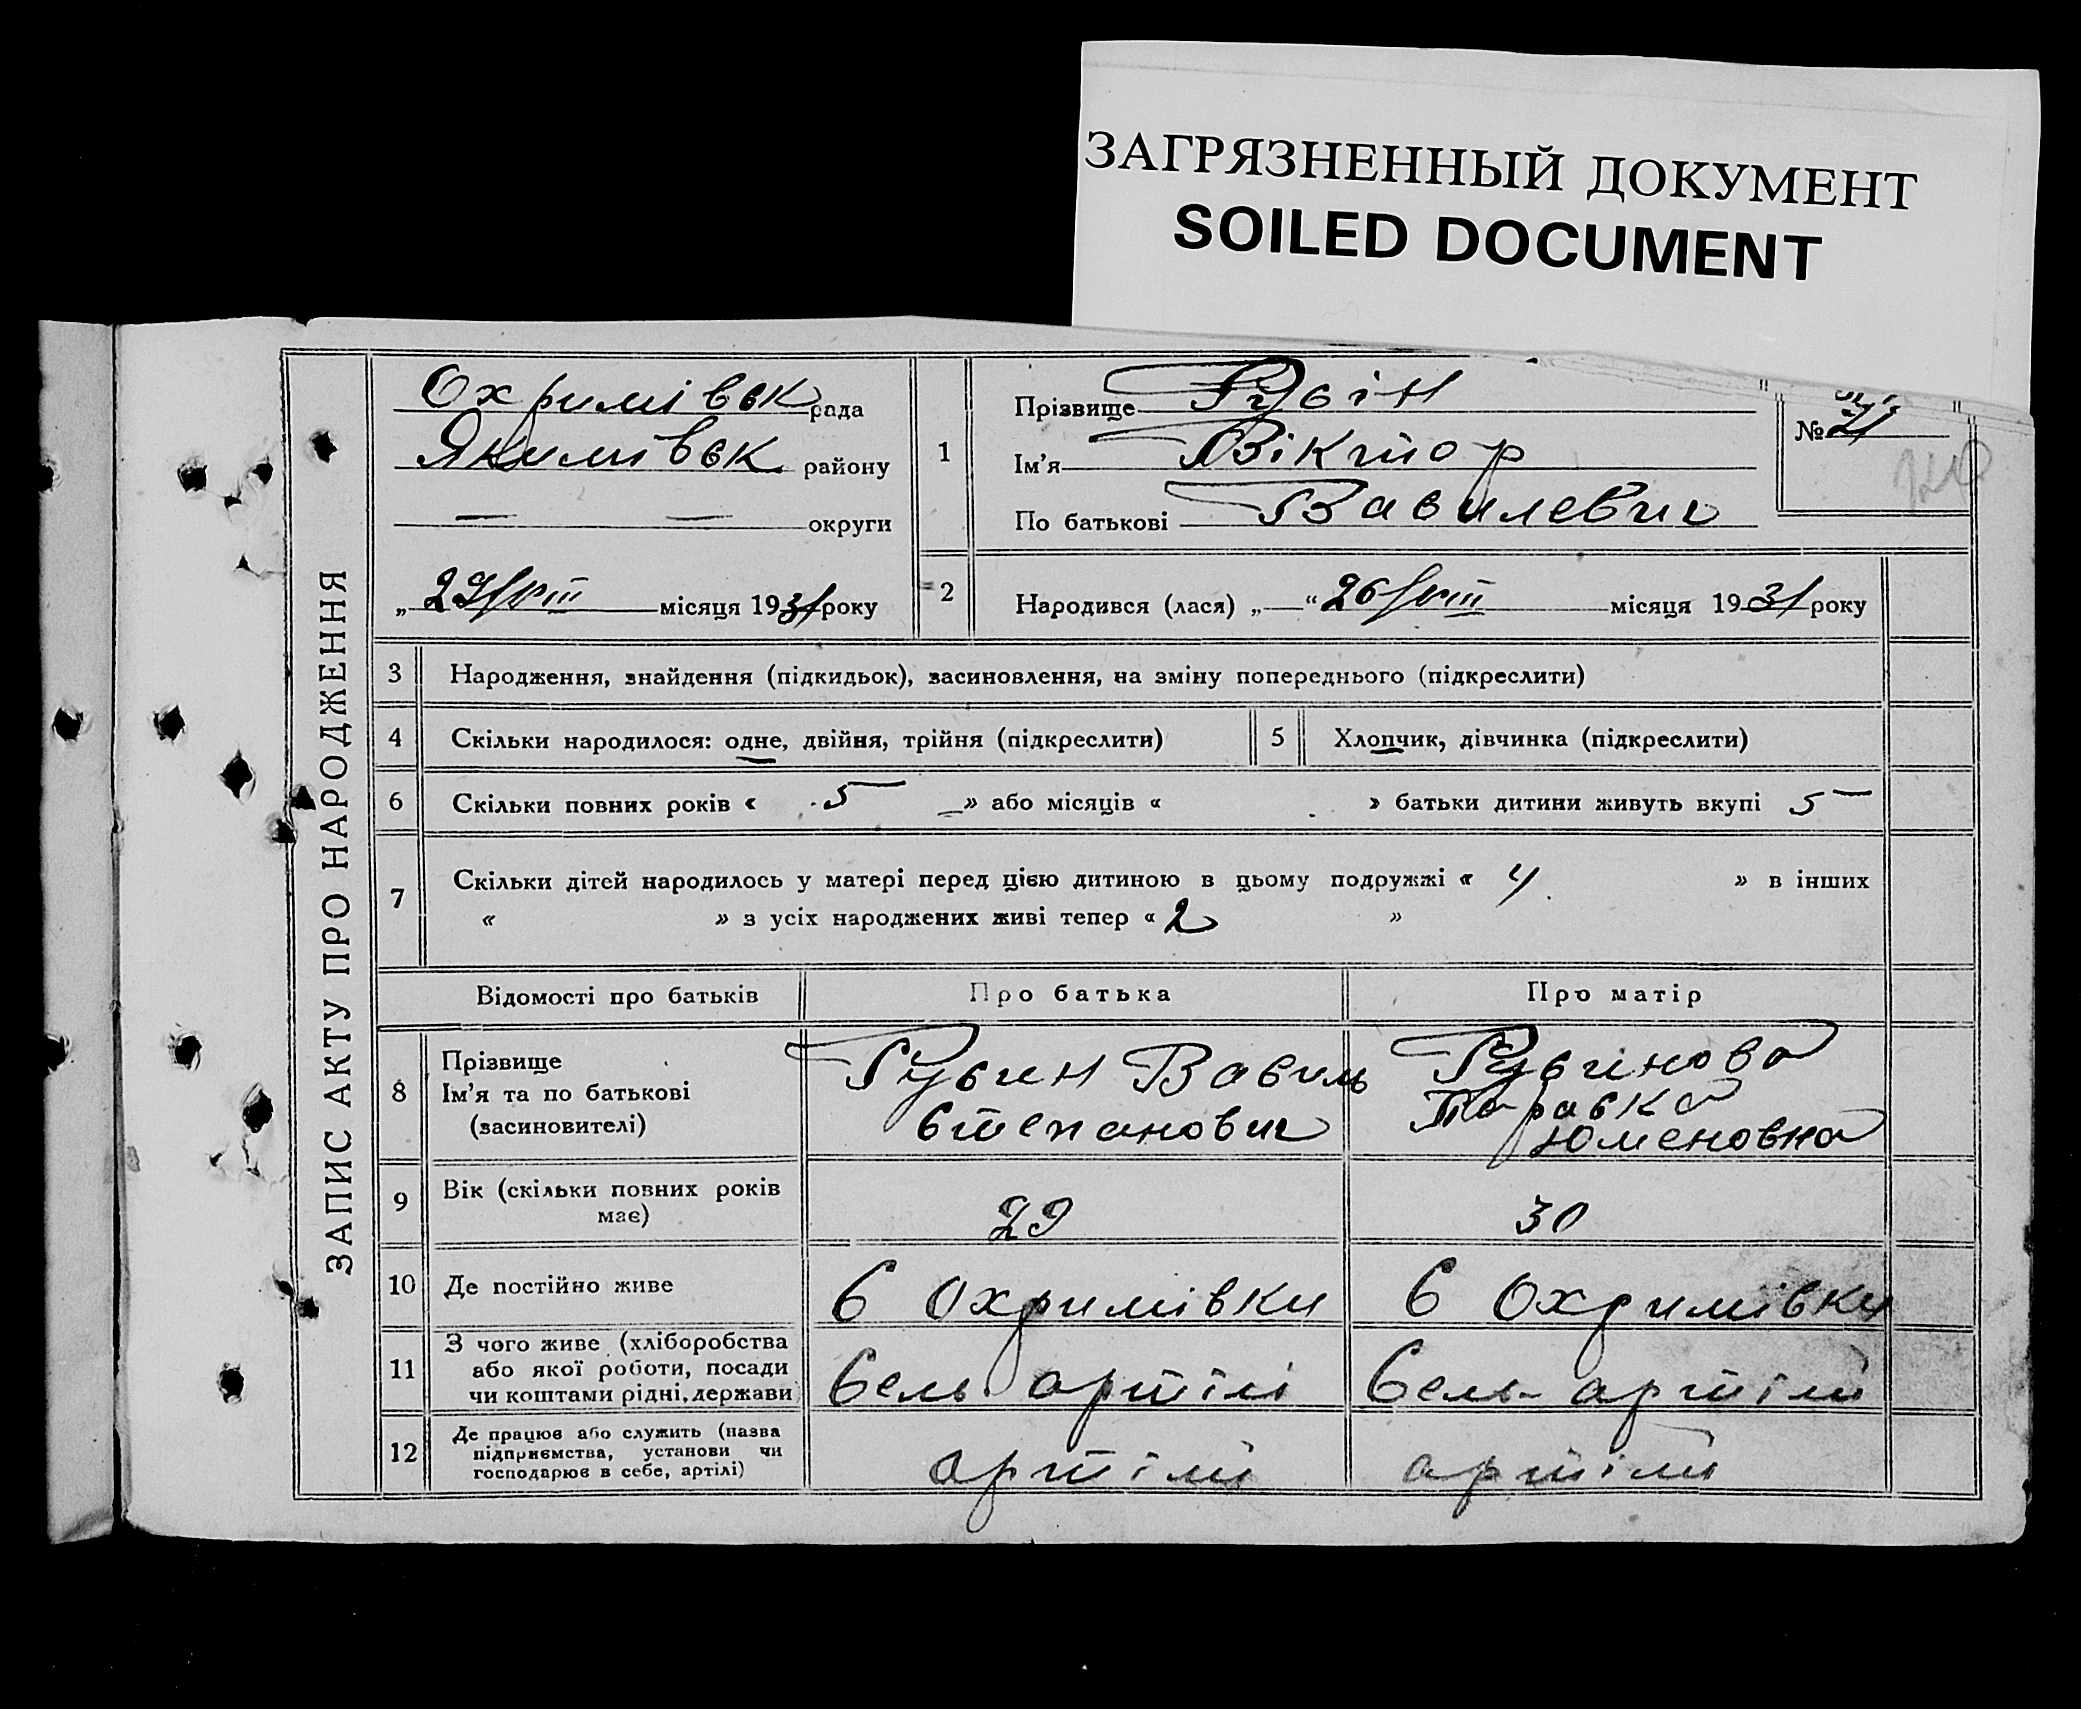 ЗАГРЯЗНЕННЫЙ ДОКУМЕНТ
SOILED DOCUMENT
ЗАПИС АКТУ ПРО НАРОДЖЕННЯ
Охримівськ рада
Якимівськ району
— — округи
„ 29/VIII місяця 1931 року
1
Прізвище
Ім'я Віктор
По батькові Вавилевич
№ 21
2 Народився (лася) „ “ 26/VIII місяця 1931 року
3 Народження, знайдення (підкидьок), засиновлення, на зміну попереднього (підкреслити)
4 Скільки народилося: одне, двійня, трійня (підкреслити) 5 Хлопчик, дівчинка (підкреслити)
6 Скільки повних років « 5 » або місяців « » батьки дитини живуть вкупі 5
7 Скільки дітей народилось у матері перед цією дитиною в цьому подружжі « 4 » в інших
« » з усіх народжених живі тепер « 2 »
Відомості про батьків Про батька Про матір
8 Прізвище
Ім'я та по батькові
(засиновителі)
Рувин Вавиль
Степанович
Рувинова
Юменовна
9 Вік (скільки повних років
має) 29 30
10 Де постійно живе С Охримівки С Охримівки
11 З чого живе (хліборобства
або якої роботи, посади
чи коштами рідні, держави
Сель артілі Сель-артілі
12 Де працює або служить (назва
підприємства, установи чи
господарює в себе, артілі)
артілі артілі